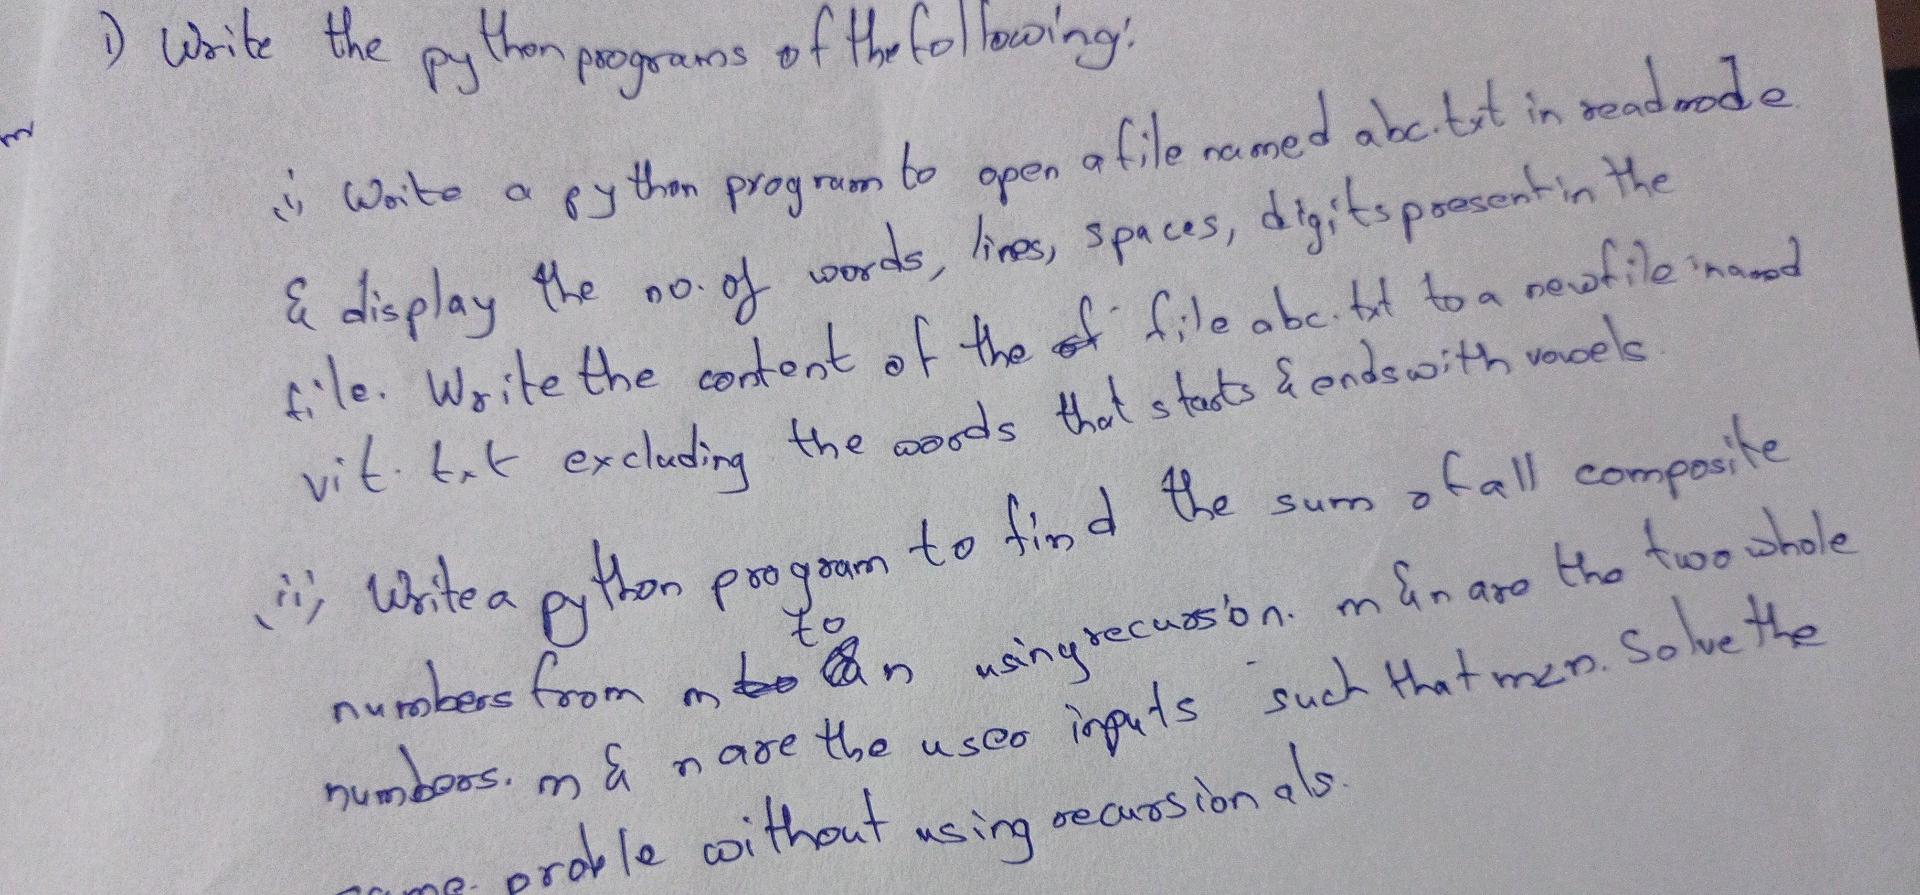 1) Write the python programs of the following:
i, Write a python program to open a file named abc.txt in read mode
& display the no. of words, lines, spaces, digits present in the
file. Write the content of the of file abc.txt to a new file named
vit.txt excluding the words that starts & ends with vowels.
ii, Write a python program to find the sum of all composite
numbers from m to n using recursion. m & n are the two whole
numbers. m & n are the user inputs such that m<n. Solve the
same proble without using recursion als.